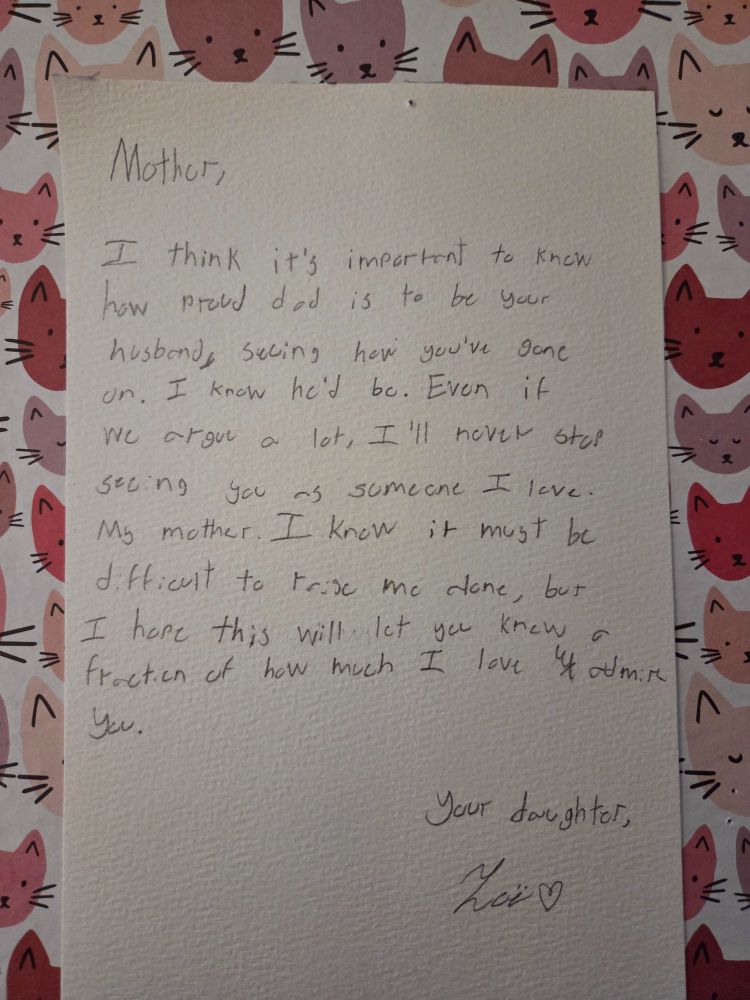 Mother,
I think it's important to know
how proud dad is to be your
husband, seeing how you've gone
on. I know he'd be. Even if
we argue a lot, I'll never stop
seeing you as someone I love.
My mother. I know it must be
difficult to raise me alone, but
I hope this will let you know a
fraction of how much I love & admire
you.
Your daughter,
Zoï ♡